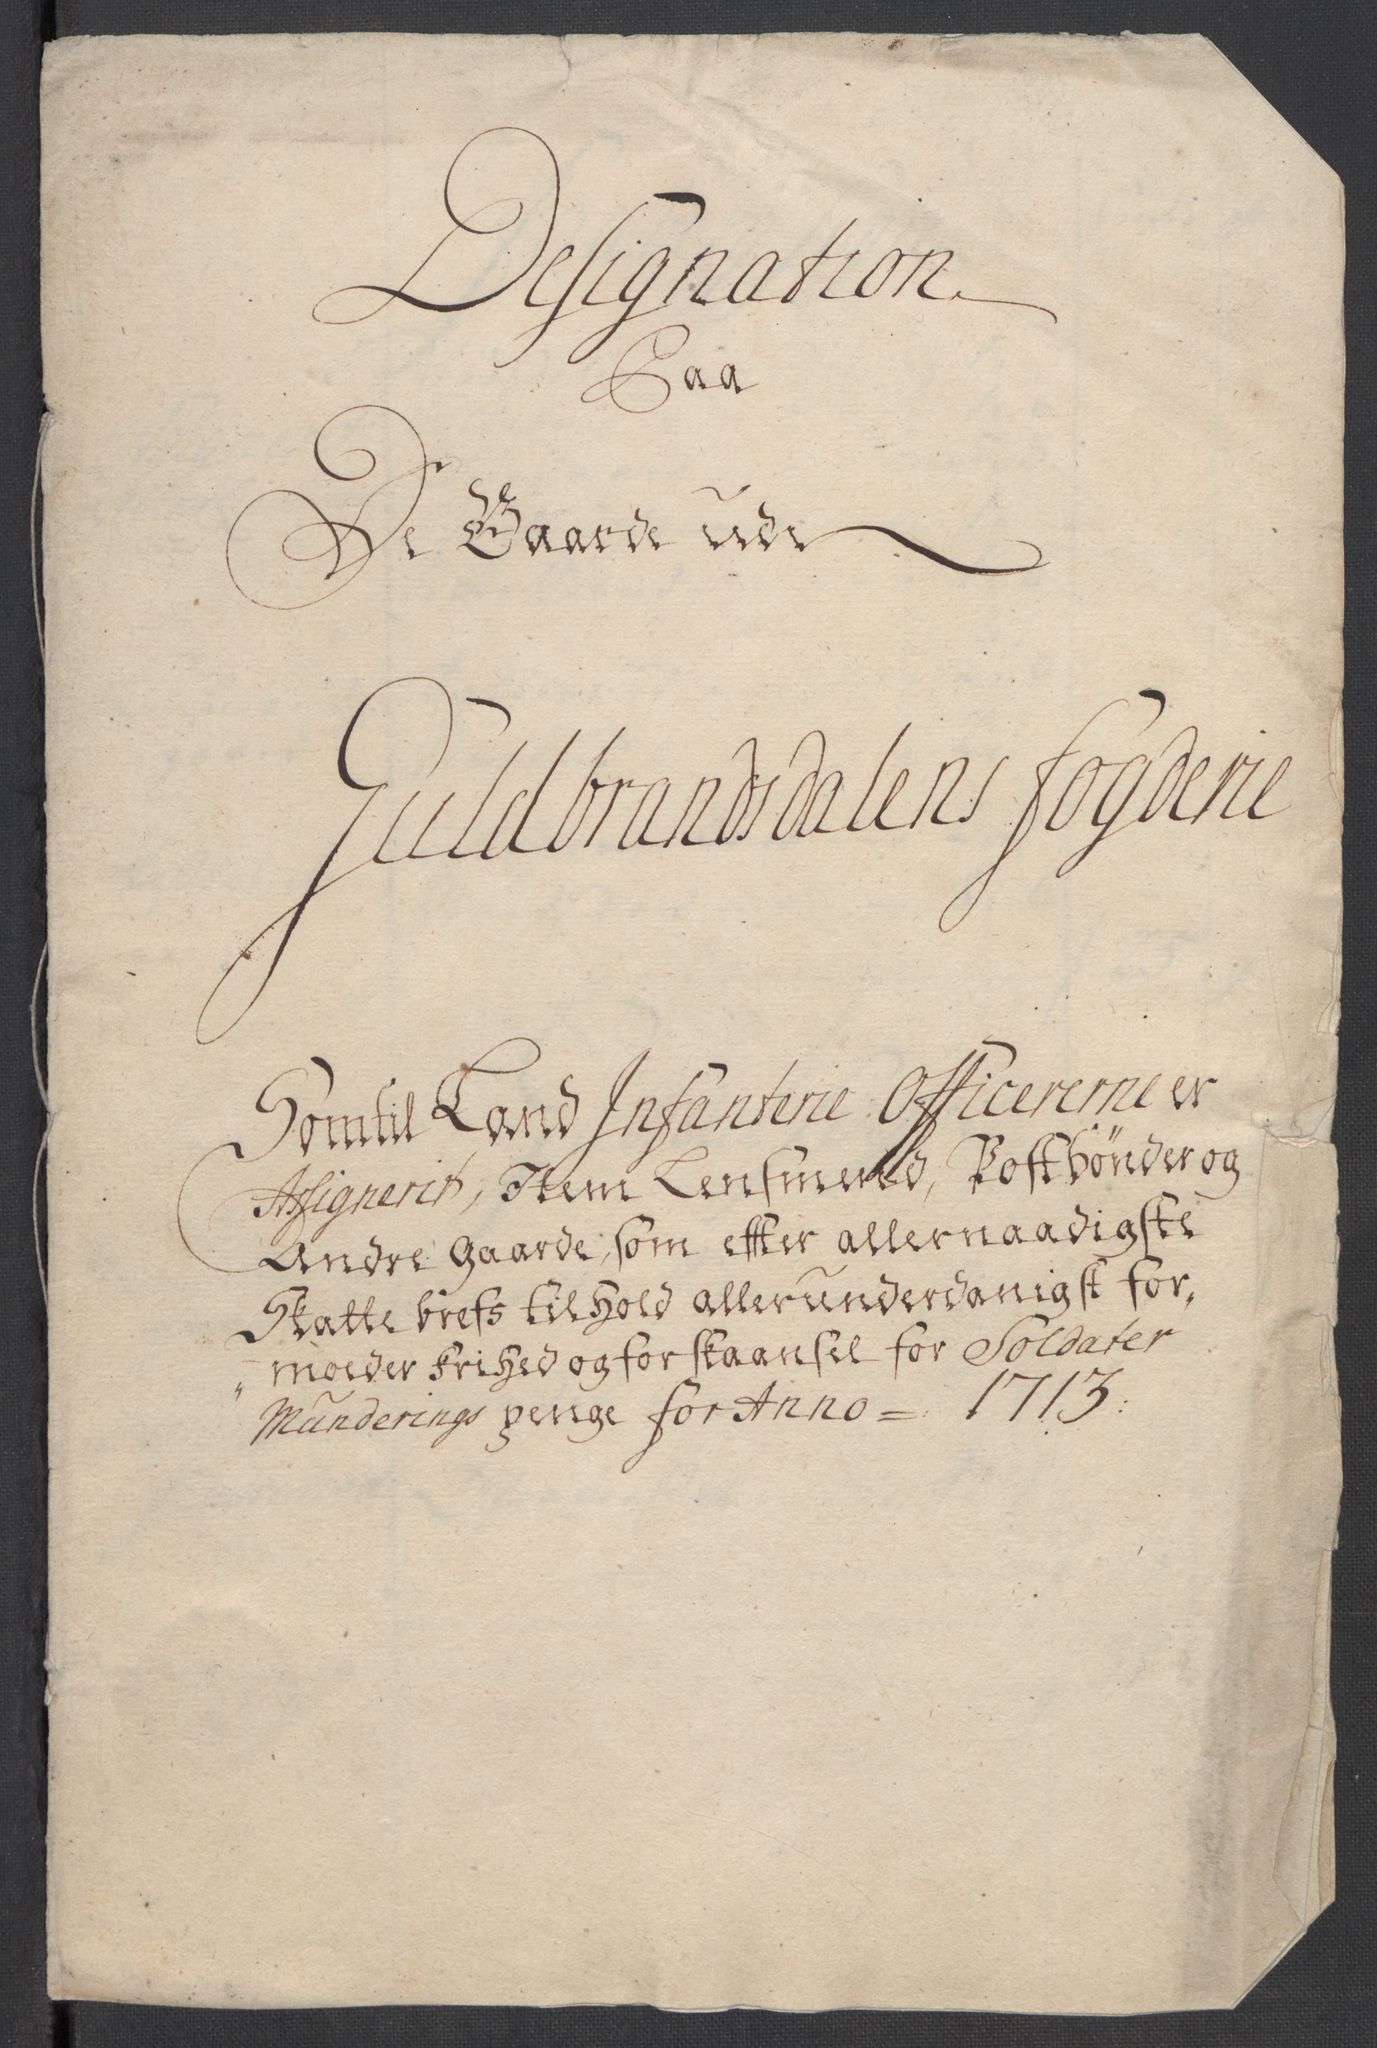 Designation
Paa
De Gaarde udi
Guldbrandsdalens fogderie
Som til Land Infanterie Officererne er
Assignerit, Item Lensmend, Postbönder og
Andre gaarde, som efter allernaadigste
Skatte brefs tilhold allerunderdanigst for,
„ moeder frihed og forskaansel for Soldater
Munderings penge for Anno = 1713: